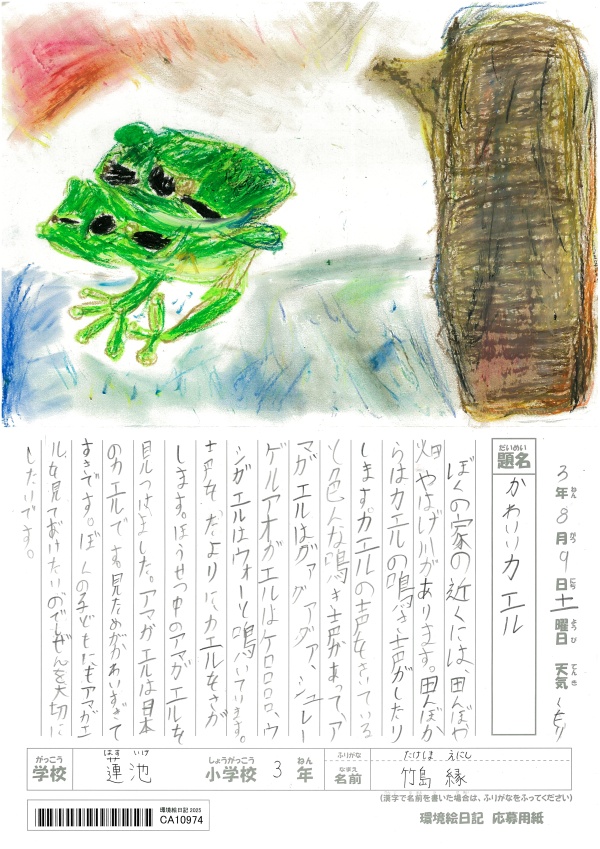 3年8月9日土曜日 天気くもり
ねん がつ にち ようび てんき
だいめい
題名 かわいいカエル
ぼくの家の近くには、田んぼや
畑やはげ川があります。田んぼか
らはカエルの鳴き声がしたり
します。カエルの声をきいている
と色んな鳴き声があって、ア
マガエルはグァグァグァ、シュレー
ゲルアオガエルはケロロロロ、ウ
シガエルはウォーと鳴いています。
声をたよりに、カエルをさが
します。ほうせつ中のアマガエルを
見つけました。アマガエルは日本
のカエルです。見ためがかわいすぎて
すきです。ぼくの子どもにもアマガエ
ルを見てあげたいのでしぜんを大切に
したいです。
がっこう はす いけ しょうがっこう ねん ふりがな たけしま えにし
学校 蓮池 小学校 3年 なまえ 名前 竹島 縁
(漢字で名前を書いた場合は、ふりがなをふってください)
環境絵日記 2025
CA10974
環境絵日記 応募用紙